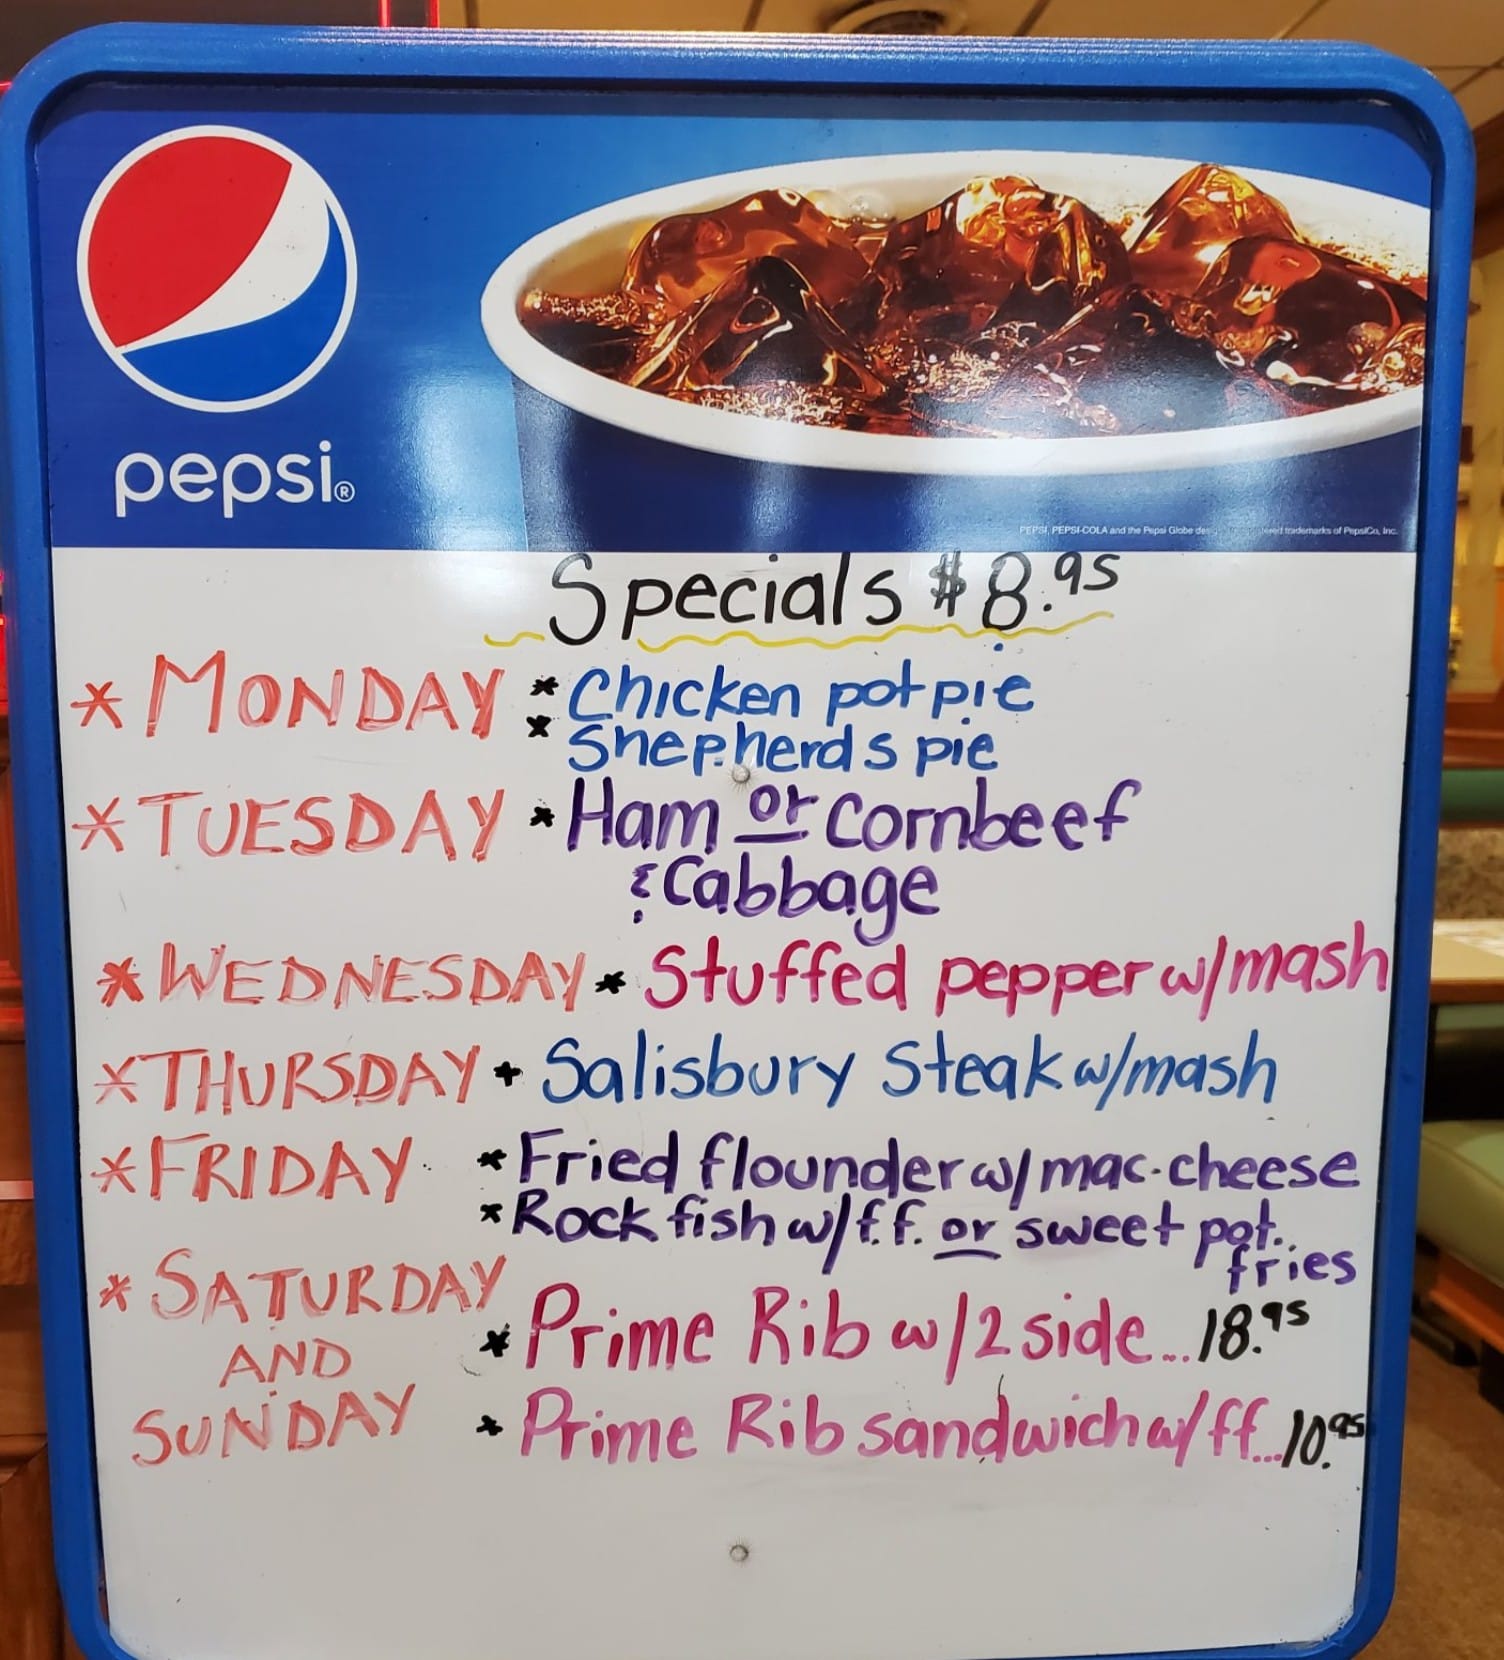 pepsi®
PEPSI, PEPSI-COLA and the Pepsi Globe trademarks of PepsiCo, Inc.
Specials $8.95
* MONDAY * Chicken pot pie
* Shepherds pie
* TUESDAY * Ham or Cornbeef
& Cabbage
* WEDNESDAY * Stuffed pepper w/mash
* THURSDAY * Salisbury Steak w/mash
* FRIDAY * Fried flounder w/ mac-cheese
* Rock fish w/f.f. or sweet pot..
fries
* SATURDAY
AND
SUNDAY
* Prime Rib w/2 side...18.95
* Prime Rib sandwich w/ff...10.95